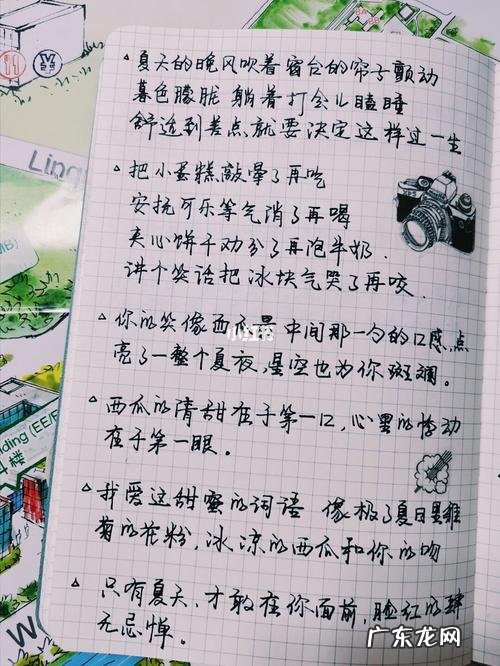 夏天的晚风吹着窗台的帘子颤动
暮色朦胧 躺着打会儿瞌睡
舒适到差点就要决定这样过一生
把小蛋糕敲晕了再吃
安抚可乐等气消了再喝
夹心饼干劝分了再泡牛奶.
讲个笑话把冰块气哭了再咬.
你的笑像西瓜最中间那一勺的口感,点
亮了一整个夏夜,星空也为你斑斓。
西瓜的清甜在于第一口,心里的悸动
在于第一眼。
我爱这甜蜜的词语 像极了夏日里雏
菊的花粉,冰凉的西瓜和你的吻
只有夏天,才敢在你面前,脸红的肆
无忌惮。
Ling
ding (EE/E
楼
MB)
BA
小红书
广东龙网